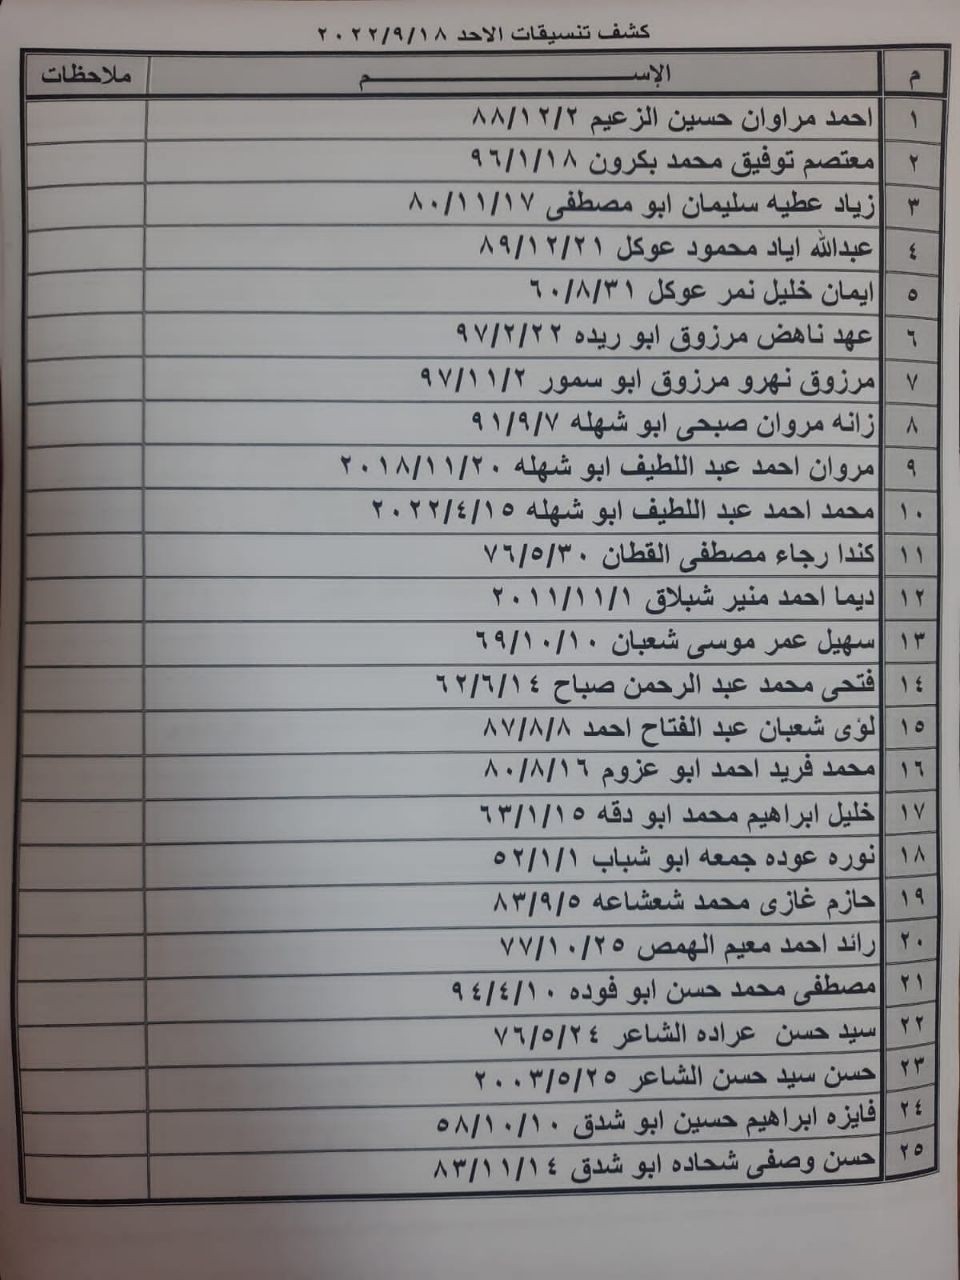 كشف تنسيقات الاحد ٢٠٢٢/٩/١٨
م الإســـــــم ملاحظات
١ احمد مراوان حسين الزعيم ٨٨/١٢/٢
٢ معتصم توفيق محمد بكرون ٩٦/١/١٨
٣ زياد عطيه سليمان ابو مصطفى ٨٠/١١/١٧
٤ عبدالله اياد محمود عوكل ٨٩/١٢/٢١
٥ ايمان خليل نمر عوكل ٦٠/٨/٣١
٦ عهد ناهض مرزوق ابو ريده ٩٧/٢/٢٢
٧ مرزوق نهرو مرزوق ابو سمور ٩٧/١١/٢
٨ زانه مروان صبحى ابو شهله ٩١/٩/٧
٩ مروان احمد عبد اللطيف ابو شهله ٢٠١٨/١١/٢٠
١٠ محمد احمد عبد اللطيف ابو شهله ٢٠٢٢/٤/١٥
١١ كندا رجاء مصطفى القطان ٧٦/٥/٣٠
١٢ ديما احمد منير شبلاق ٢٠١١/١١/١
١٣ سهيل عمر موسى شعبان ٦٩/١٠/١٠
١٤ فتحى محمد عبد الرحمن صباح ٦٢/٦/١٤
١٥ لؤى شعبان عبد الفتاح احمد ٨٧/٨/٨
١٦ محمد فريد احمد ابو عزوم ٨٠/٨/١٦
١٧ خليل ابراهيم محمد ابو دقه ٦٣/١/١٥
١٨ نوره عوده جمعه ابو شباب ٥٢/١/١
١٩ حازم غازى محمد شعشاعه ٨٣/٩/٥
٢٠ رائد احمد معيم الهمص ٧٧/١٠/٢٥
٢١ مصطفى محمد حسن ابو فوده ٩٤/٤/١٠
٢٢ سيد حسن عراده الشاعر ٧٦/٥/٢٤
٢٣ حسن سيد حسن الشاعر ٢٠٠٣/٥/٢٥
٢٤ فايزه ابراهيم حسين ابو شدق ٥٨/١٠/١٠
٢٥ حسن وصفى شحاده ابو شدق ٨٣/١١/١٤